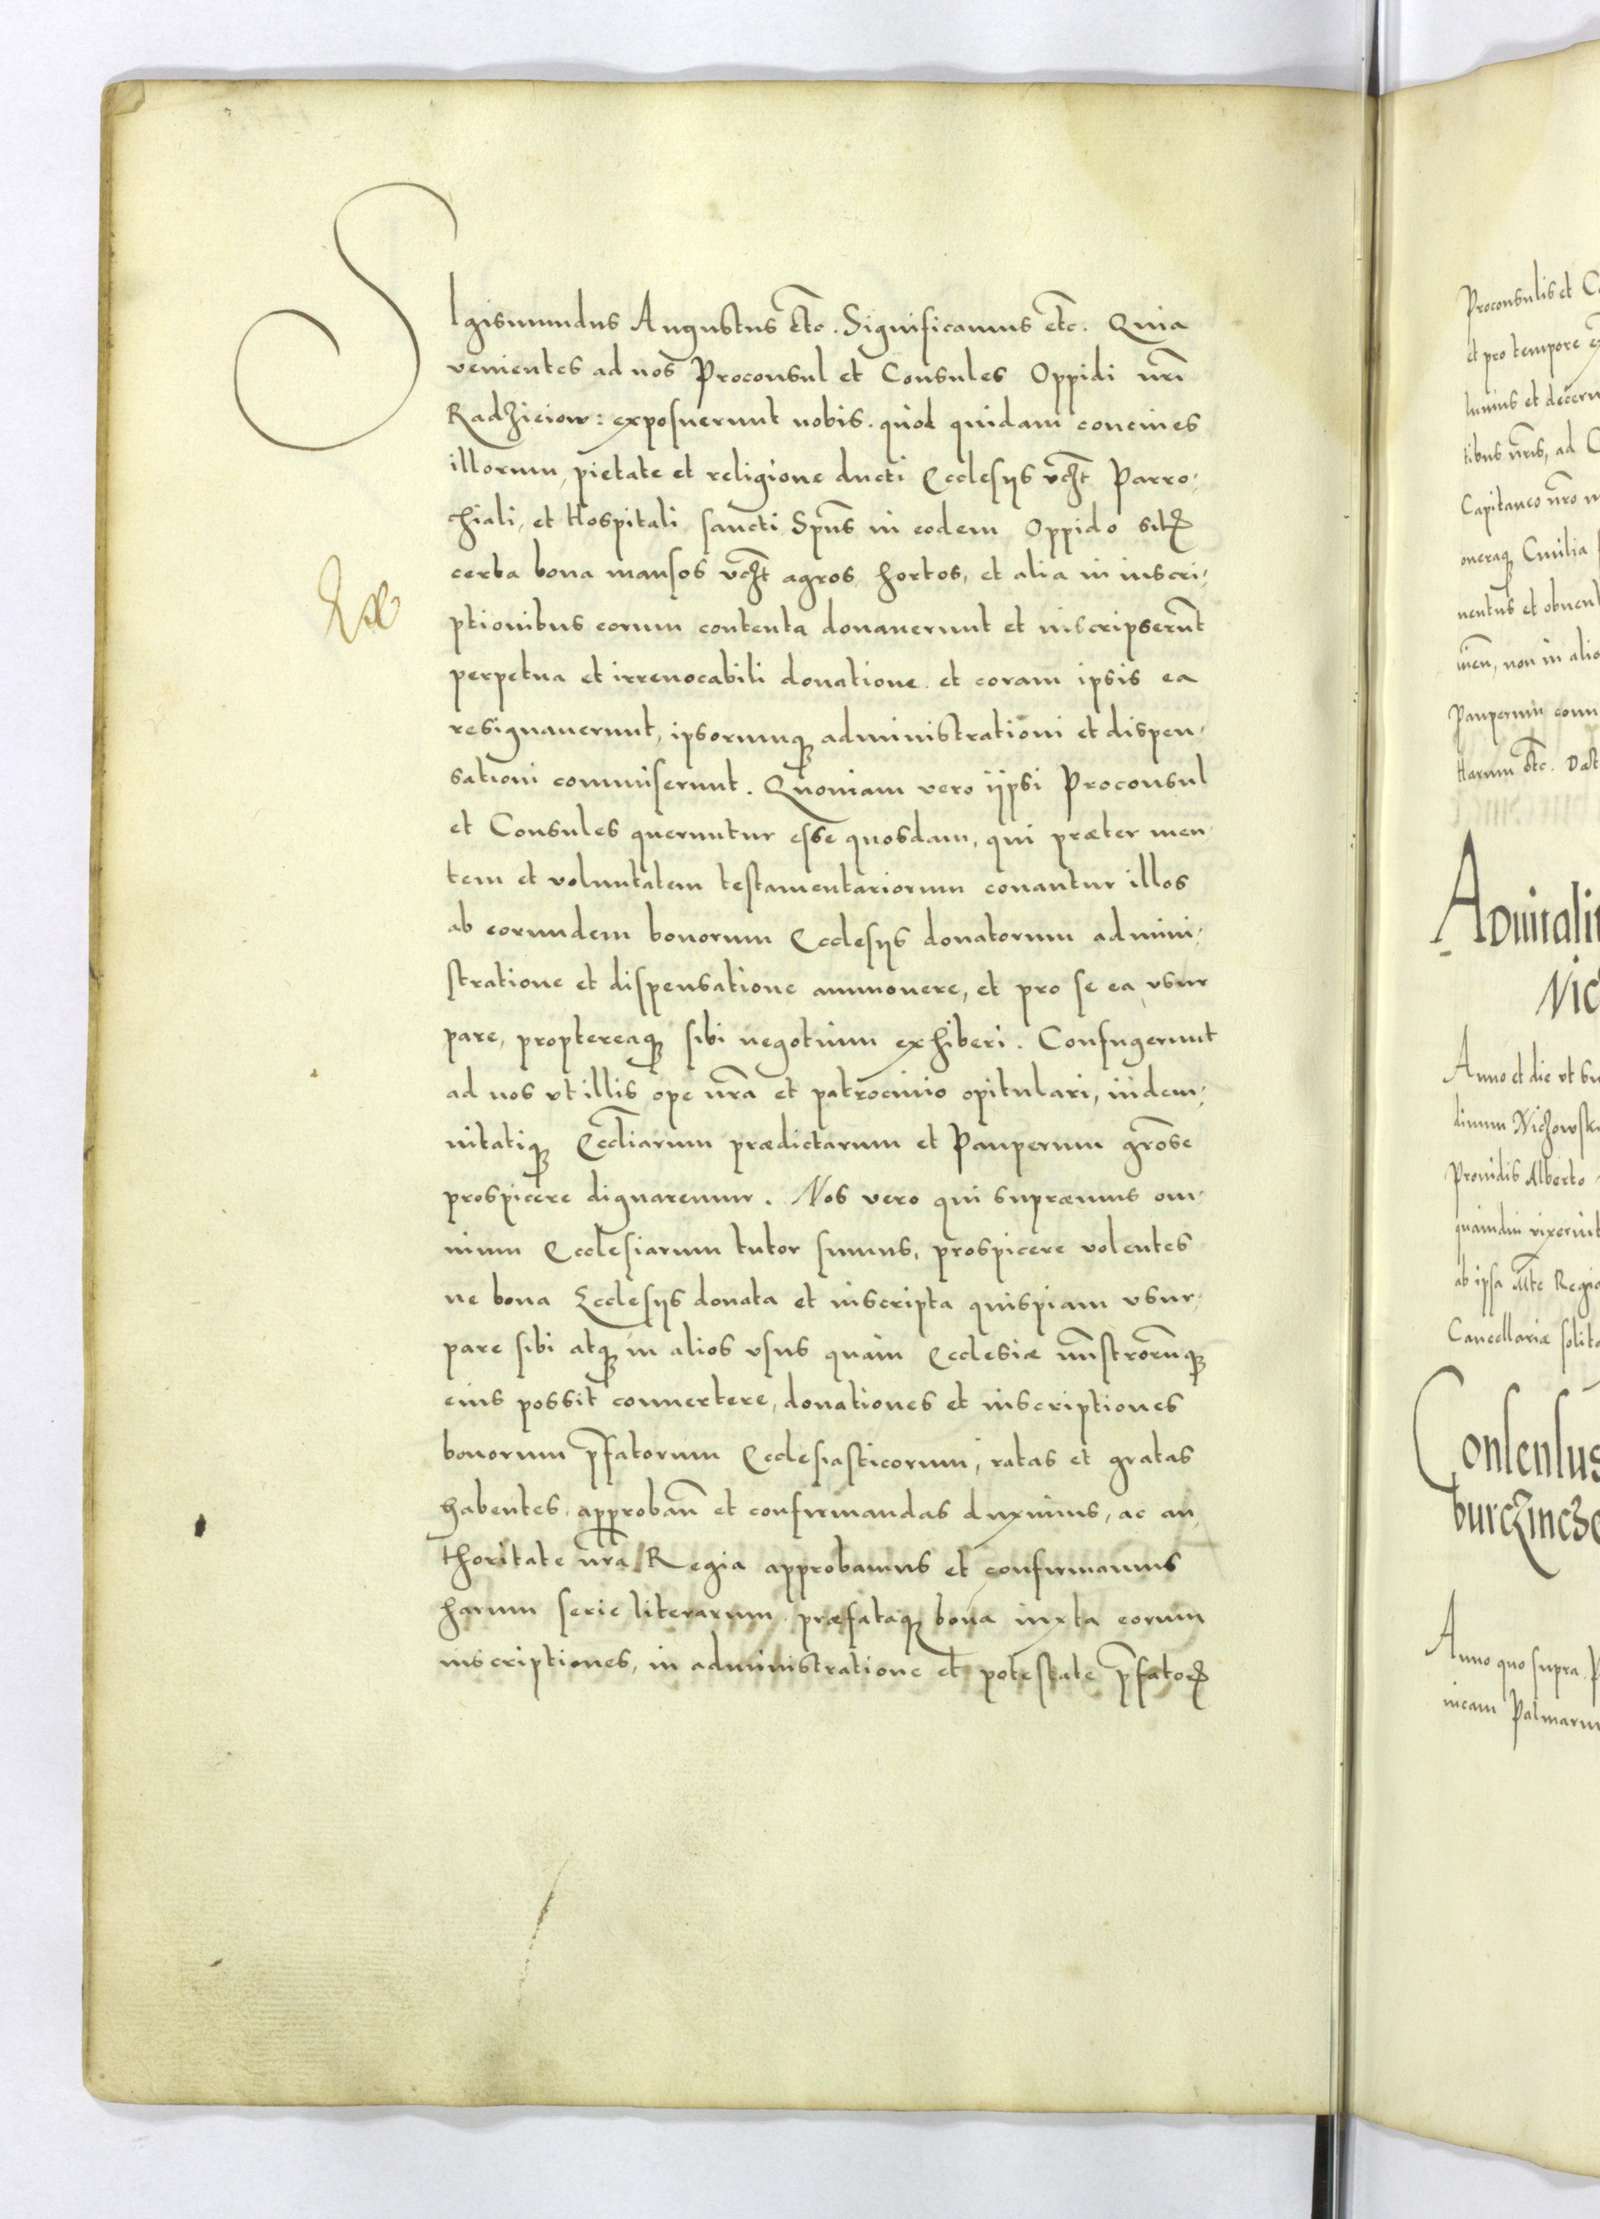 SIgismundus Augustus etc. Significamus etc. Quia
venientes ad nos Proconsul et Consules Oppidi nri
Radzieiow: exposuerunt nobis. quod quidam concives
illorum, pietate et religione ducti Ecclesijs vcht Parro,
chiali, et Hospitali sancti Spus in eodem Oppido sit
certa bona mansos vcht agros, hortos, et alia in inscri,
ptionibus eorum contenta donauerunt et inscripserunt
perpetua et irreuocabili donatione. et coram ipsis ea
resignauerunt, ipsorumq administrationi et dispen,
sationi commiserunt. Quoniam vero ijpsi Proconsul
et Consules queruntur esse quosdam, qui præter men
tem et voluntatem testamentariorum conantur illos
ab eorundem bonorum Ecclesijs donatorum admini,
stratione et dispensatione ammouere, et pro se ea vsur
pare, proptereaq sibi negotium exhiberi. Confugerunt
ad nos vt illis ope nra et patrocinio opitulari, indem,
nitatiq Eccliarum prædictarum et Pauperum grose
prospicere dignaremur. Nos vero qui supræmus om,
nium Ecclesiarum tutor sumus, prospicere volentes
ne bona Ecclesijs donata et inscripta quispiam vsur,
pare sibi atq in alios vsus quam Ecclesiæ mnstrorumq
eius possit conuertere, donationes et inscriptiones
bonorum pfatorum Ecclesiasticorum, ratas et gratas
habentes, approban et confirmandas duximus, ac au,
thoritate nra Regia approbamus et confirmamus
harum serie literarum. præfataq bona iuxta eorum
inscriptiones, in administratione et potestate pfator
Proconsulis et
et pro tempore
tibus nris, ad
Capitaneo nro
oneraq Ciuilia
uentus et obuent
non in alio
Pauperum
Harum etc. Dat
Aduitalit
Anno et die vt
Prouidis Alberto
quamdiu vixerint
ab ipsa Mte Regia
Cancellariæ solita
Consensus
Anno quo supra
nicam Palmarum